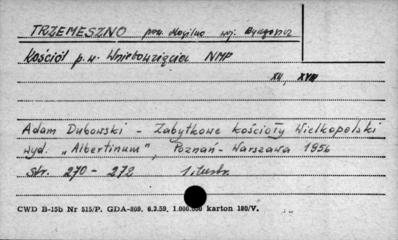 TRZEMESZNO pow. Mogilno woj. Bydgoszcz
Kościół p.w. Wniebowzięcia NMP
XII, XVIII
Adam Dubowski - Zabytkowe kościoły Wielkopolski
wyd. „Albertinum", Poznań - Warszawa 1956
str. 270 - 272 ilustr.
CWD B-15b Nr 515/P. GDA-809. 6.3.59. 1.000.000 karton 180/V.